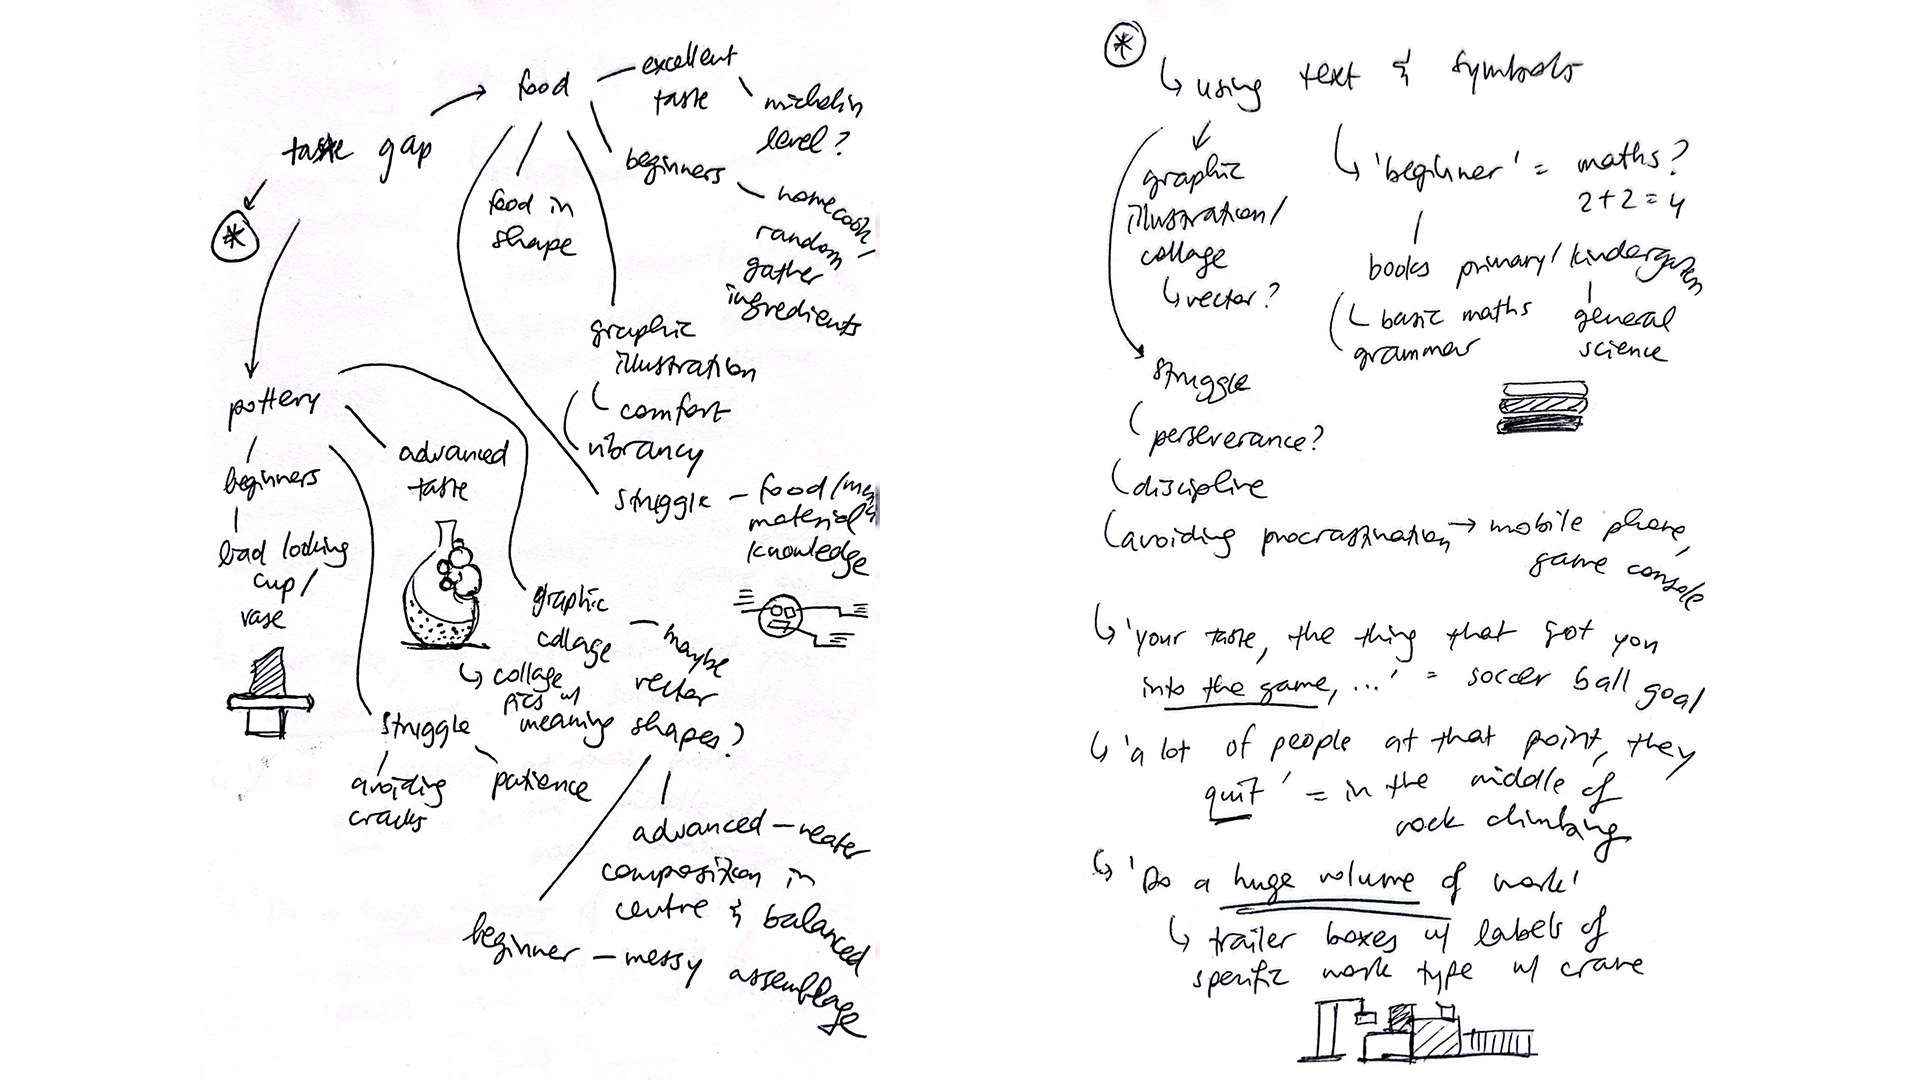 taste gap
food
excellent
taste
michelin
level?
beginners
homecook/
random
gather
ingredients
food in
shape
graphic
illustration
comfort
vibrancy
struggle - food/
material
knowledge
*
pottery
beginners
bad looking
cup/
vase
advanced
taste
graphic
collage
collage
pics w/
meaning
maybe
vector
shapes?
struggle
avoiding
cracks
patience
advanced - neater
composition in
centre & balanced
beginner - messy assemblage
*
using text & symbols
graphic
illustration/
collage
vector?
'beginner' = maths?
2+2=4
books primary/kindergarten
basic maths
grammar
general
science
struggle
perseverance?
discipline
avoiding procrastination → mobile phone,
game console
'your taste, the thing that got you
into the game, ...' = soccer ball goal
'a lot of people at that point, they
quit' = in the middle of
rock climbing
'Do a huge volume of work'
trailer boxes w/ labels of
specific work type w/ crane